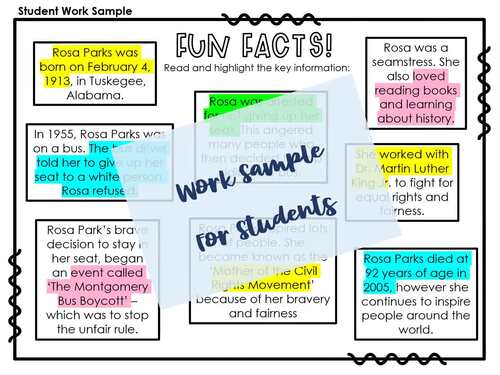 Student Work Sample
FUN FACTS!
Read and highlight the key information:
Rosa Parks was
born on February 4,
1913, in Tuskegee,
Alabama.
Rosa was arrested
for not giving up her
seat. This angered
many people who
then decided
Rosa was a
seamstress. She
also loved
reading books
and learning
about history.
In 1955, Rosa Parks was
on a bus. The bus driver
told her to give up her
seat to a white person.
Rosa refused.
She worked with
Dr. Martin Luther
King Jr. to fight for
equal rights and
fairness.
Work sample
For students
Rosa Park's brave
decision to stay in
her seat, began
an event called
'The Montgomery
Bus Boycott' –
which was to stop
the unfair rule.
Rosa Parks inspired lots
of people. She
became known as the
'Mother of the Civil
Rights Movement'
because of her bravery
and fairness
Rosa Parks died at
92 years of age in
2005, however she
continues to inspire
people around the
world.